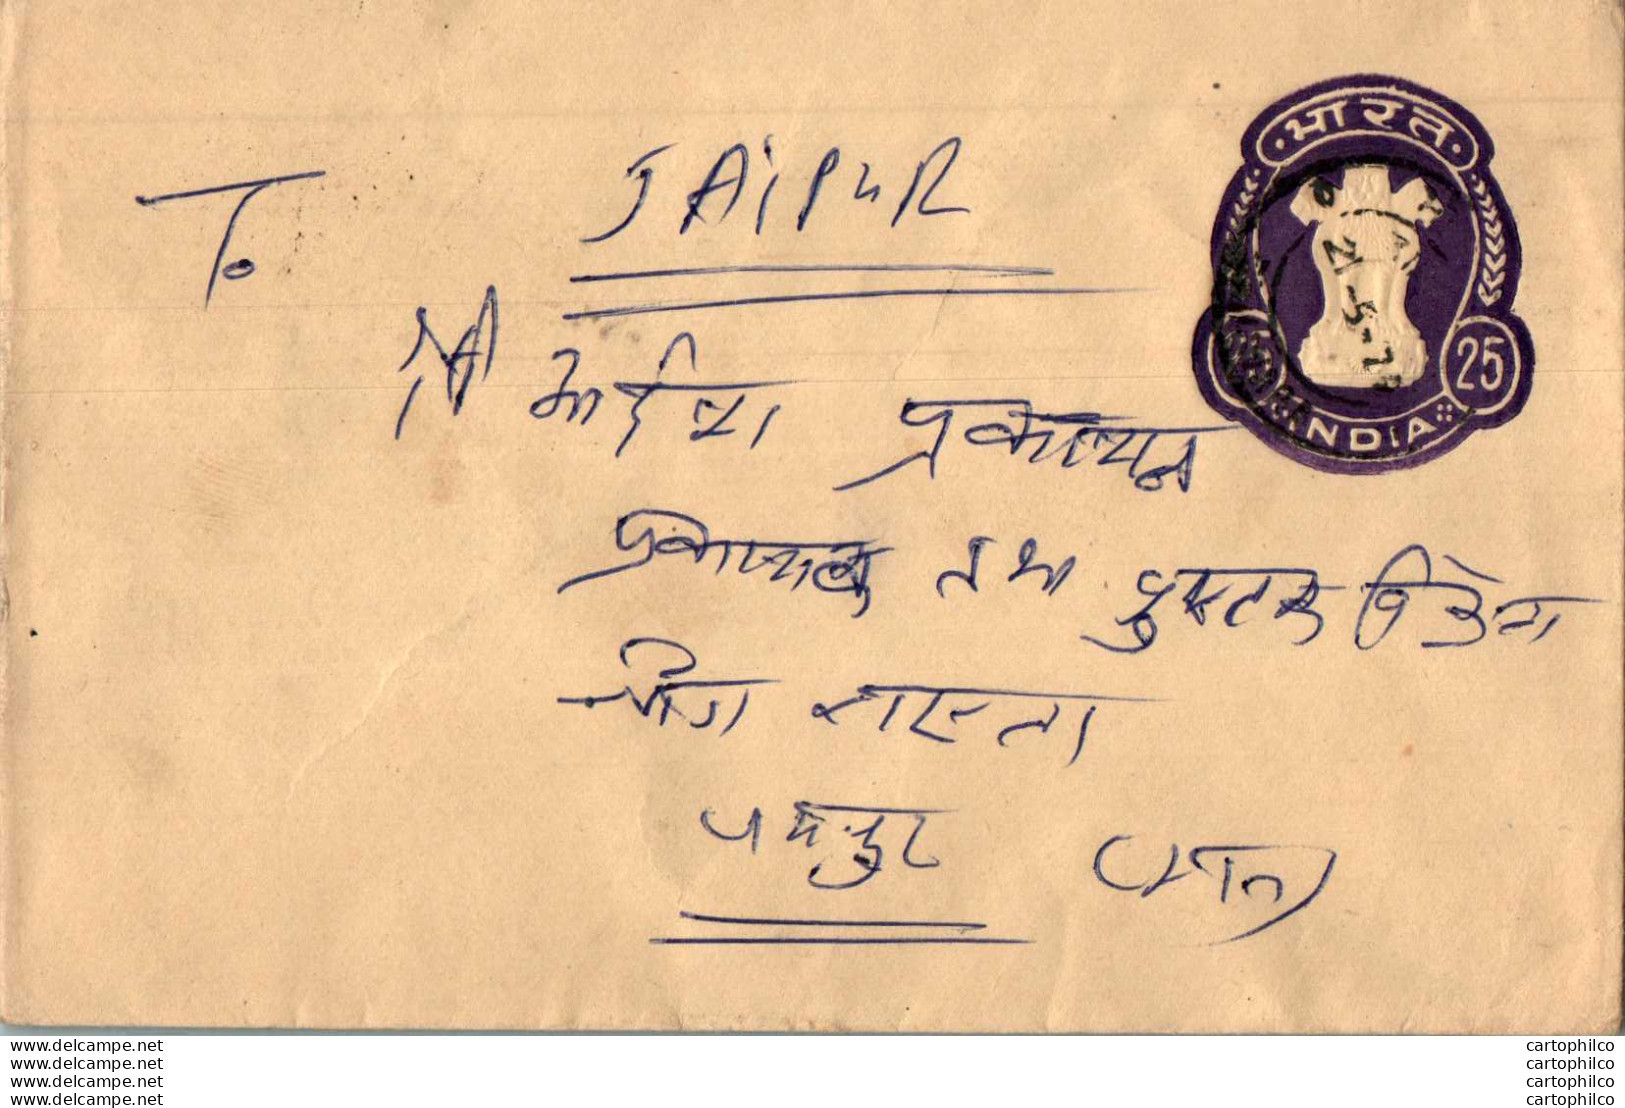 भारत
JAIPUR
To
21-5-7
25
INDIA
श्री आदित्य प्रकाशन
प्रकाशक तथा पुस्तक विक्रेता
रास्ता
जयपुर (राज)
www.delcampe.net
www.delcampe.net
www.delcampe.net
www.delcampe.net
cartophilco
cartophilco
cartophilco
cartophilco